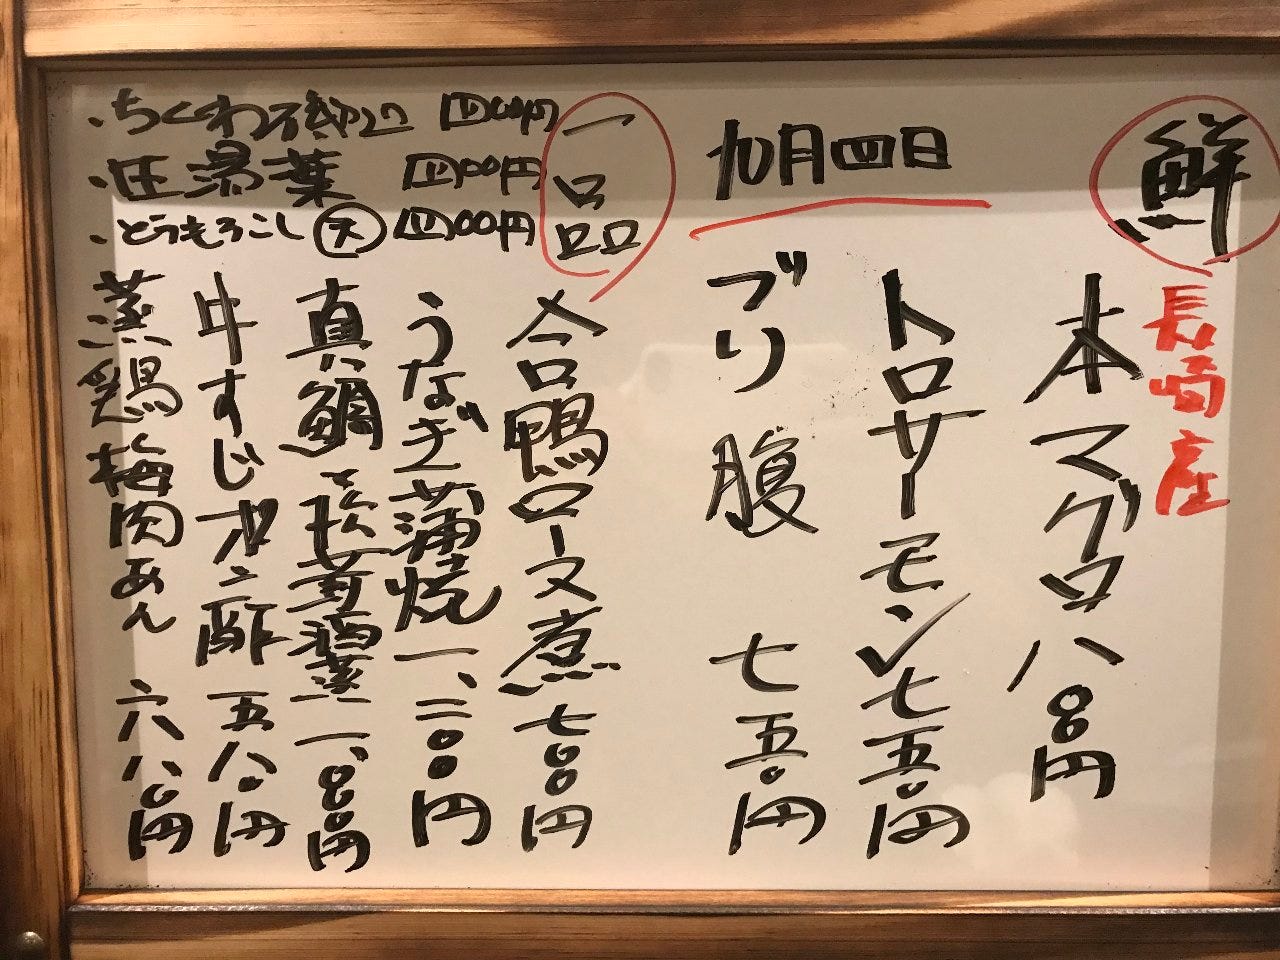 鮮
長崎産
本マグロ 八〇〇円
トロサーモン 七五〇円
10月四日
ブリ腹 七五〇円
一品
合鴨ロース煮 七〇〇円
うなぎ蒲焼 一、二〇〇円
真鯛と松茸酒蒸 一、〇〇〇円
牛すじポン酢 五八〇円
蒸鶏梅肉あん 六八〇円
・ちくわ磯辺 四〇〇円
・生湯葉 四〇〇円
・とうもろこし 天 四〇〇円